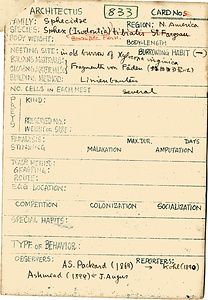 ARCHITECTUS 833 CARD NO. 5
FAMILY: Sphecidae REGION: N. America
SPECIES: Sphex (Isodontia) tibialis St. Fargeau
BODY WEIGHT: BODY-LENGTH:
NESTING SITE: in old burrow of Xylocopa virginica BURROWING HABIT (—)
BUILDING MATERIALS:
Fragmente von Fäden
BUILDING METHOD: Linienbauten
NO. CELLS IN EACH NEST several
PREY
KIND:
PRESERVED NO.:
WEIGHT OR SIZE:
PARALYSIS: MAX. DUR. DAYS
STINGING: MALAXATION AMPUTATION
TRANSPORT:
CARRYING:
ROUTE:
EGG LOCATION:
COMPETITION COLONIZATION SOCIALIZATION
SPECIAL HABITS:
TYPE OF BEHAVIOR:
OBSERVERS: A.S. Packard (1869) REPORTERS: Kohl (1890)
Ashmead (1894) & J. Angus